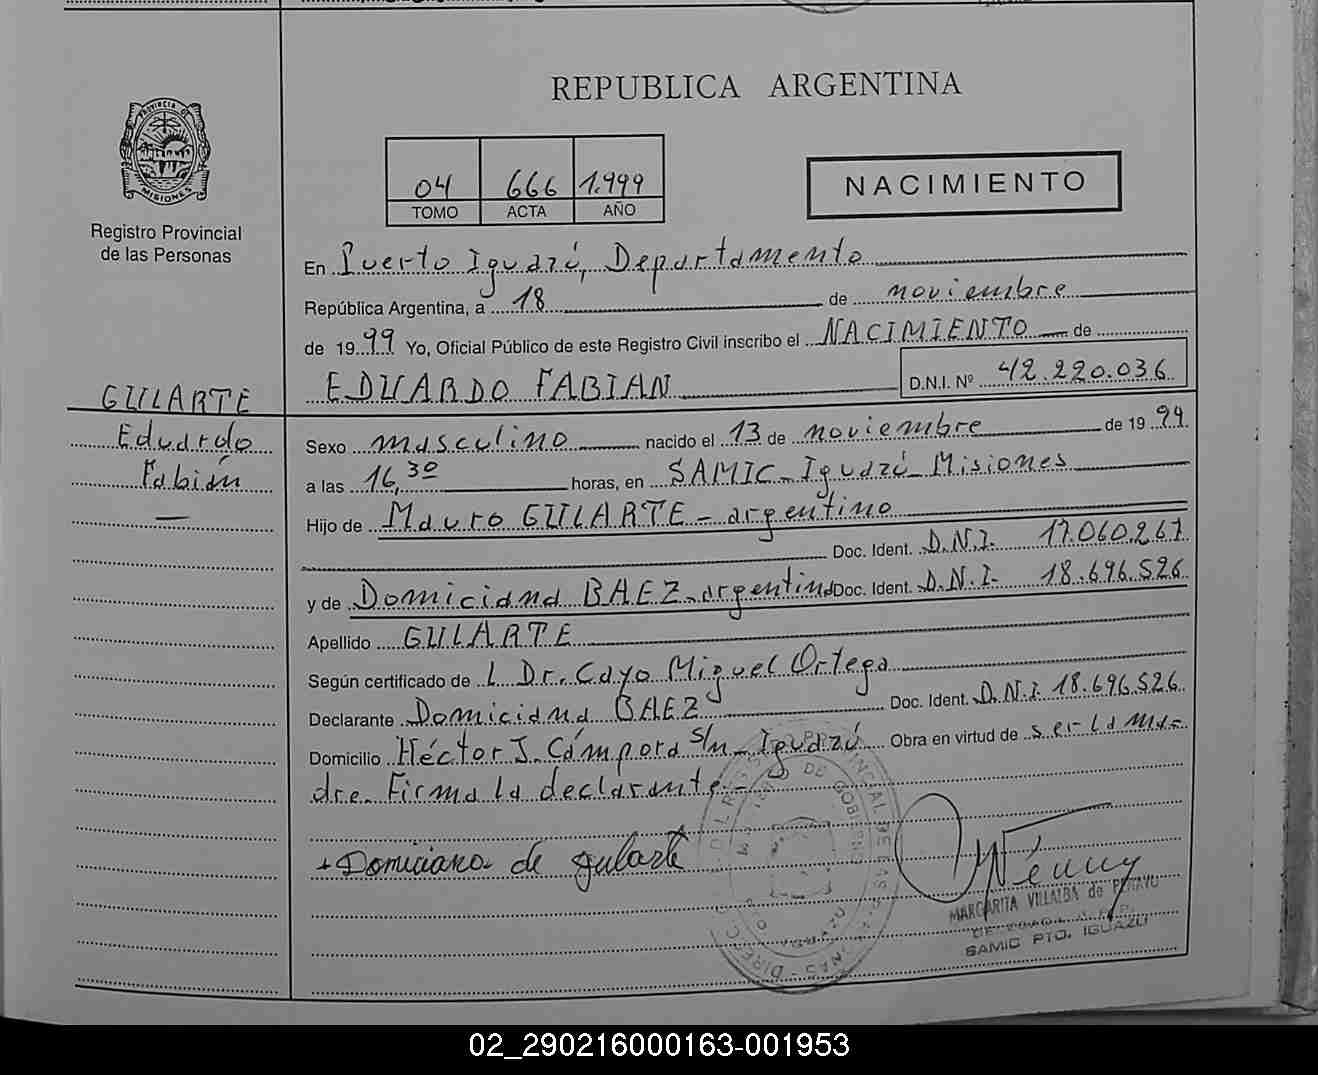 REPUBLICA ARGENTINA
PROVINCIA DE
MISIONES
Registro Provincial
de las Personas
04 666 1.999
TOMO ACTA AÑO
NACIMIENTO
En Puerto Iguazú, Departamento
República Argentina, a 18 de noviembre
de 1999 Yo, Oficial Público de este Registro Civil inscribo el NACIMIENTO de
EDUARDO FABIAN D.N.I. Nº 42.220.036
GULARTE
Eduardo
Fabián
Sexo masculino nacido el 13 de noviembre de 1999
a las 16,30 horas, en SAMIC - Iguazú - Misiones
Hijo de Mauro GULARTE - argentino
Doc. Ident. D.N.I. 17.060.267
y de Domiciana BAEZ - argentina Doc. Ident. D.N.I. 18.696.526
Apellido GULARTE
Según certificado de L Dr. Cayo Miguel Ortega
Declarante Domiciana BAEZ Doc. Ident. D.N.I. 18.696.526
Domicilio Héctor J. Cámpora s/n - Iguazú Obra en virtud de ser la ma-
dre. Firma la declarante.-
+ Domiciana de Gularte
MARGARITA VILLALBA de
SAMIC PTO. IGUAZU
02_290216000163-001953